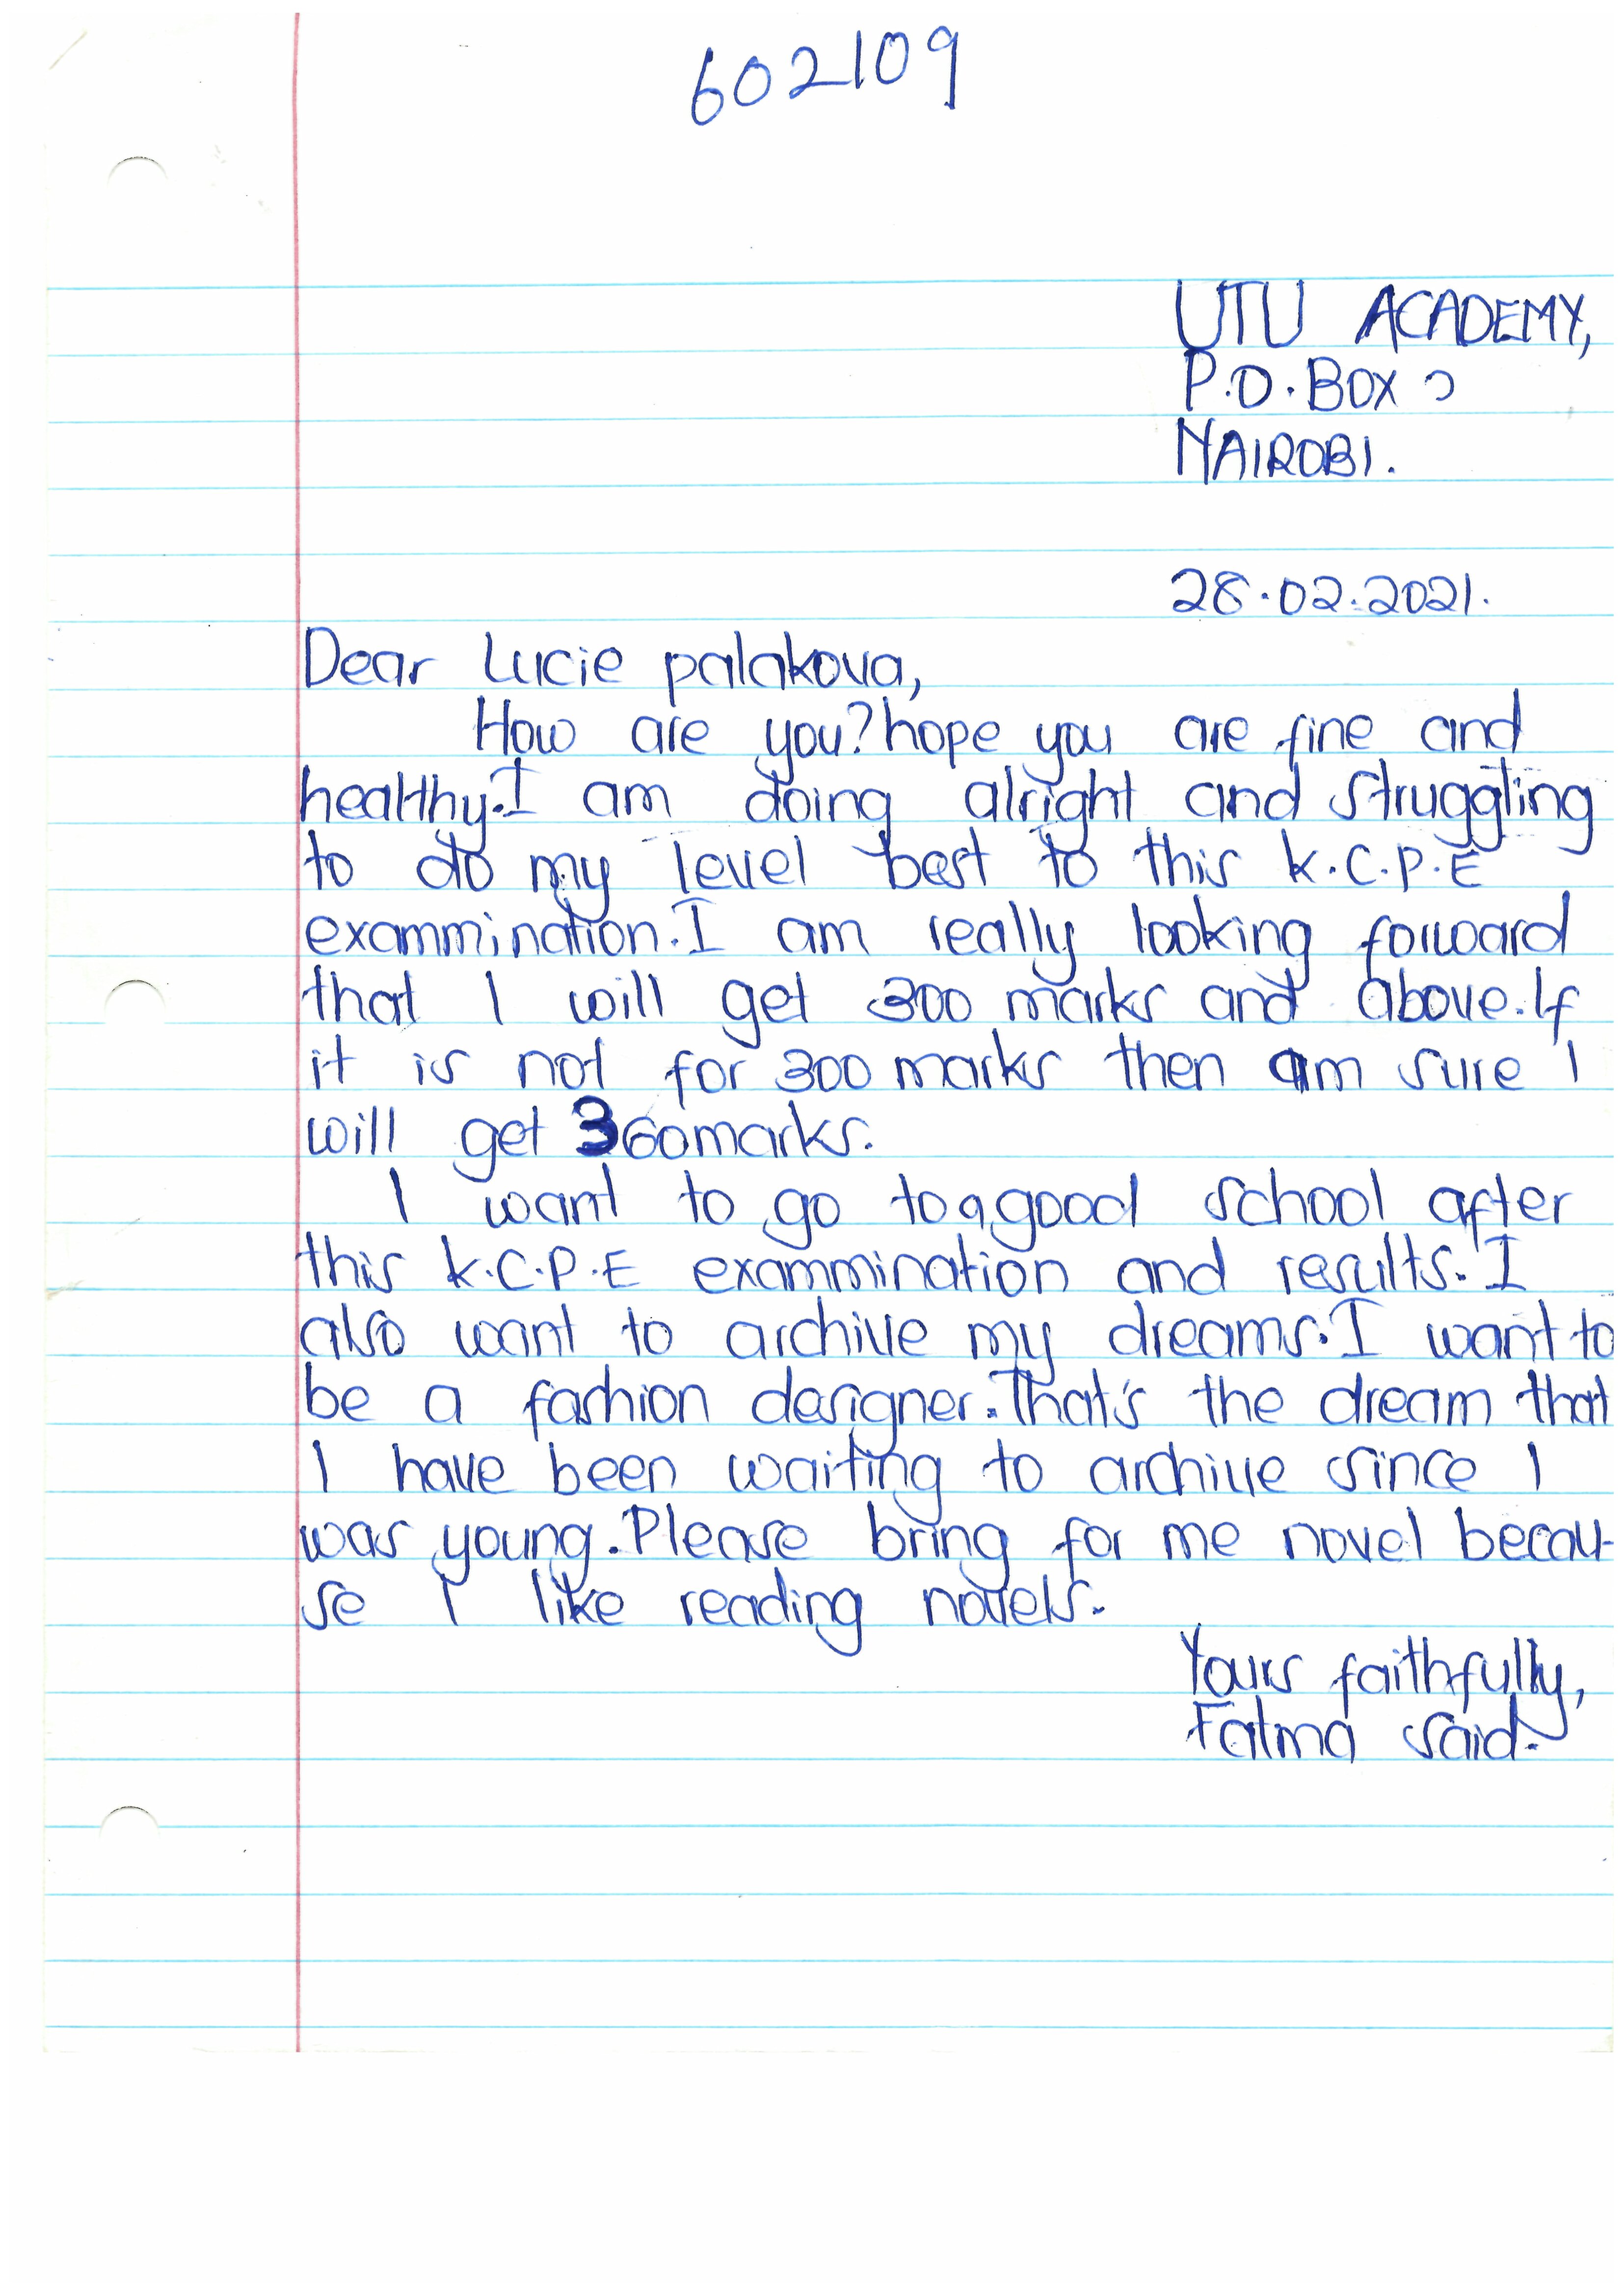 602109
UTU ACADEMY,
P.O. BOX
NAIROBI.
28.02.2021.
Dear Lucie palakova,
How are you? hope you are fine and
healthy. I am doing alright and struggling
to do my level best to this k.C.P.E
exammination. I am really looking forward
that I will get 300 marks and above. If
it is not for 300 marks then am sure I
will get 360 marks.
I want to go to a good school after
this k.C.P.E exammination and results. I
also want to archive my dreams. I want to
be a fashion designer. That's the dream that
I have been waiting to archive since I
was young. Please bring for me novel becau-
se I like reading novels.
Yours faithfully,
Fatma said.